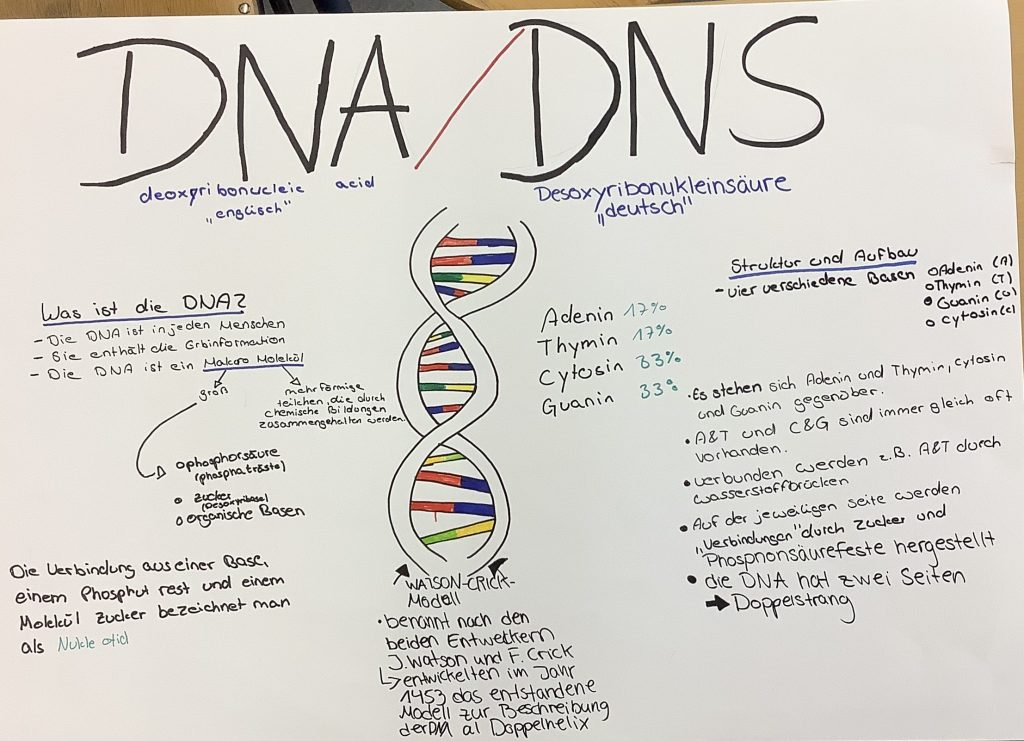 DNA/DNS
deoxyribonucleic acid
„englisch"
Desoxyribonukleinsäure
„deutsch"
Was ist die DNA?
- Die DNA ist in jeden Menschen
- Sie enthält die Erbinformation
- Die DNA ist ein Makro Molekül
groß
mehrförmige
teilchen, die durch
chemische Bildungen
zusammengehalten werden.
phosphorsäure
(phosphatreste)
zucker
(Desoxyribose)
organische Basen
Die Verbindung aus einer Base,
einem Phosphat rest und einem
Molekül zucker bezeichnet man
als Nukleotid
WATSON-CRICK-
Modell
• benannt nach den
beiden Entweckern
J. Watson und F. Crick
↳ entwickelten im Jahr
1953 das entstandene
Modell zur Beschreibung
der DNA al Doppelhelix
Adenin 17%
Thymin 17%
Cytosin 33%
Guanin 33%
Struktur und Aufbau
- vier verschiedene Basen
Adenin (A)
Thymin (T)
Guanin (G)
Cytosin (C)
• Es stehen sich Adenin und Thymin, Cytosin
und Guanin gegenüber.
• A&T und C&G sind immer gleich oft
vorhanden.
• verbunden werden z.B. A&T durch
wasserstoffbrücken
• Auf der jeweiligen seite werden
„Verbindungen" durch zucker und
Phosphonsäurefeste hergestellt
• die DNA hat zwei Seiten
→ Doppelstrang